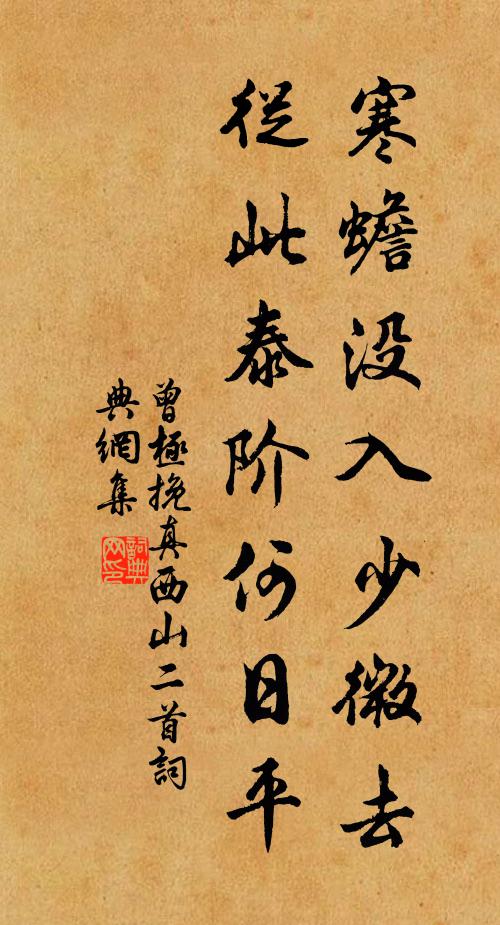 寒蟾没入少微去
從此泰阶何日平
曾極挽真西山二首詞
典網集
詞典
网印